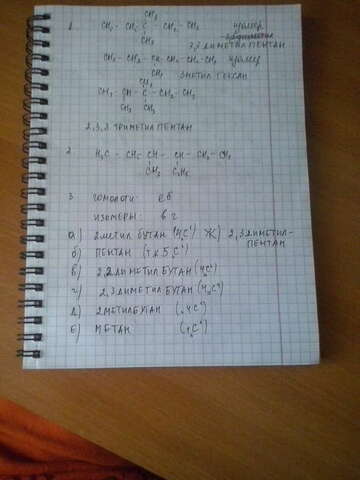 CH3
1. CH3 - CH2 - C - CH2 - CH3 изомер
CH3 3,3 диметил пентан
CH3 - CH2 - CH - CH2 - CH2 - CH3 изомер
CH3 3метил гексан
CH3
CH3 - CH - C - CH2 - CH3
CH3 CH3
2,3,3 триметил пентан
2. H3C - CH2 - CH - CH - CH2 - CH3
CH3 C2H5
3 гомологи: е б
изомеры: в г
а) 2метил бутан (4"C") ж) 2,3диметил-
пентан
б) пентан (т.к 5"C")
в) 2,2диметил бутан (4"C")
г) 2,3диметил бутан (4"C")
д) 2метилбутан ("4C")
е) метан (1"C")